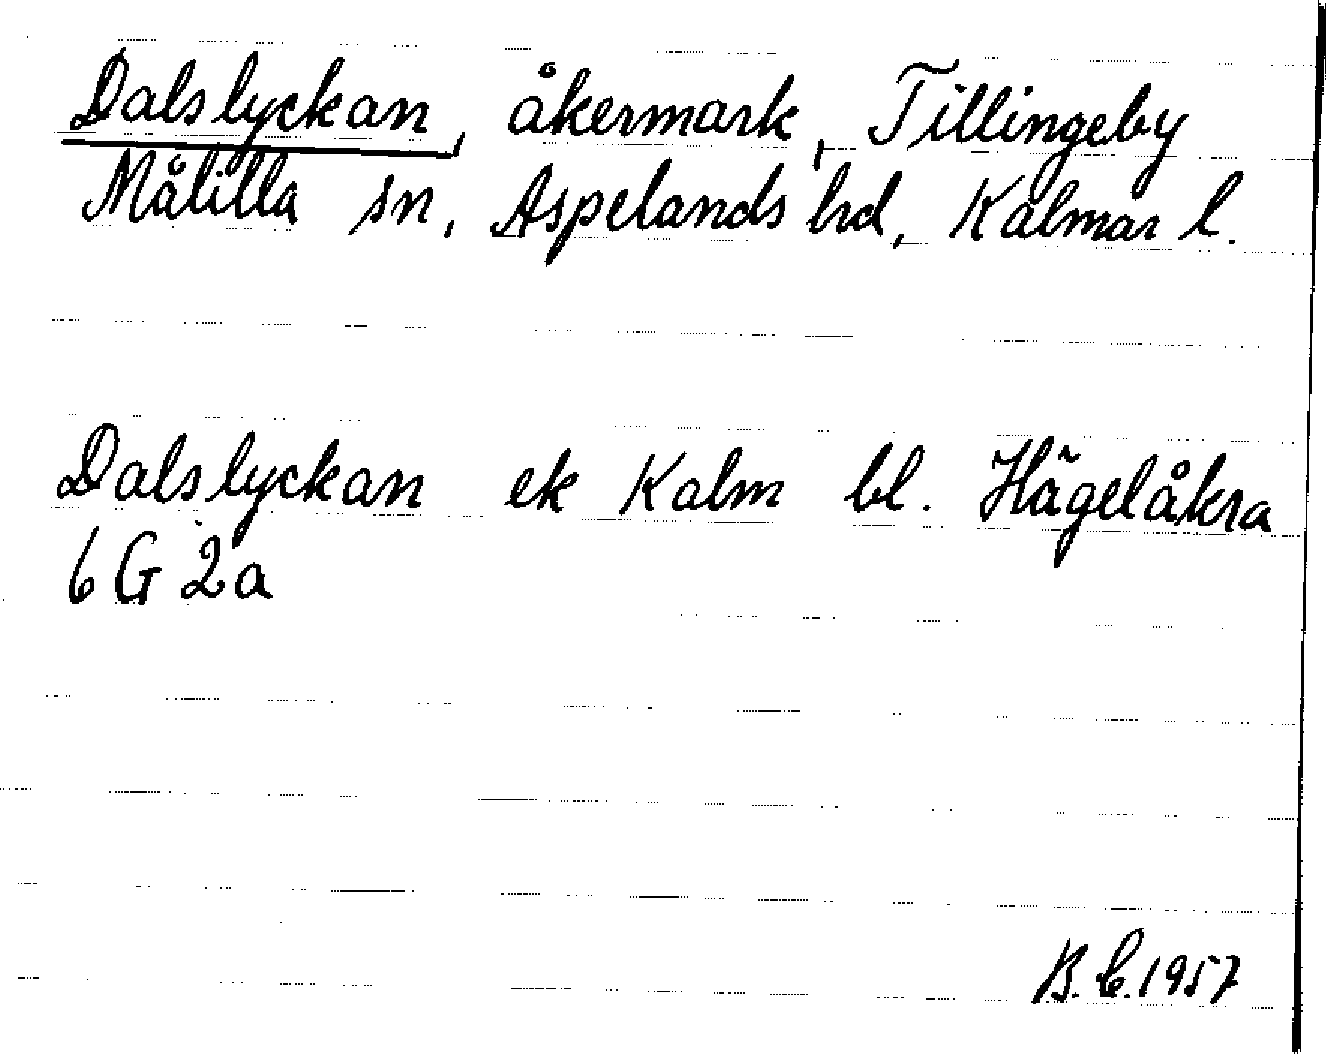 Dalslyckan, åkermark, Tillingeby
Målilla sn, Aspelands hd, Kalmar l.
Dalslyckan ek Kalm bl. Hägelåkra
6 G 2a
B.C.1957